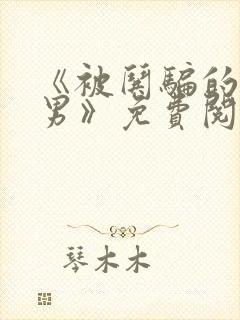 《被鬨騙的
男》免費閱
琴木木